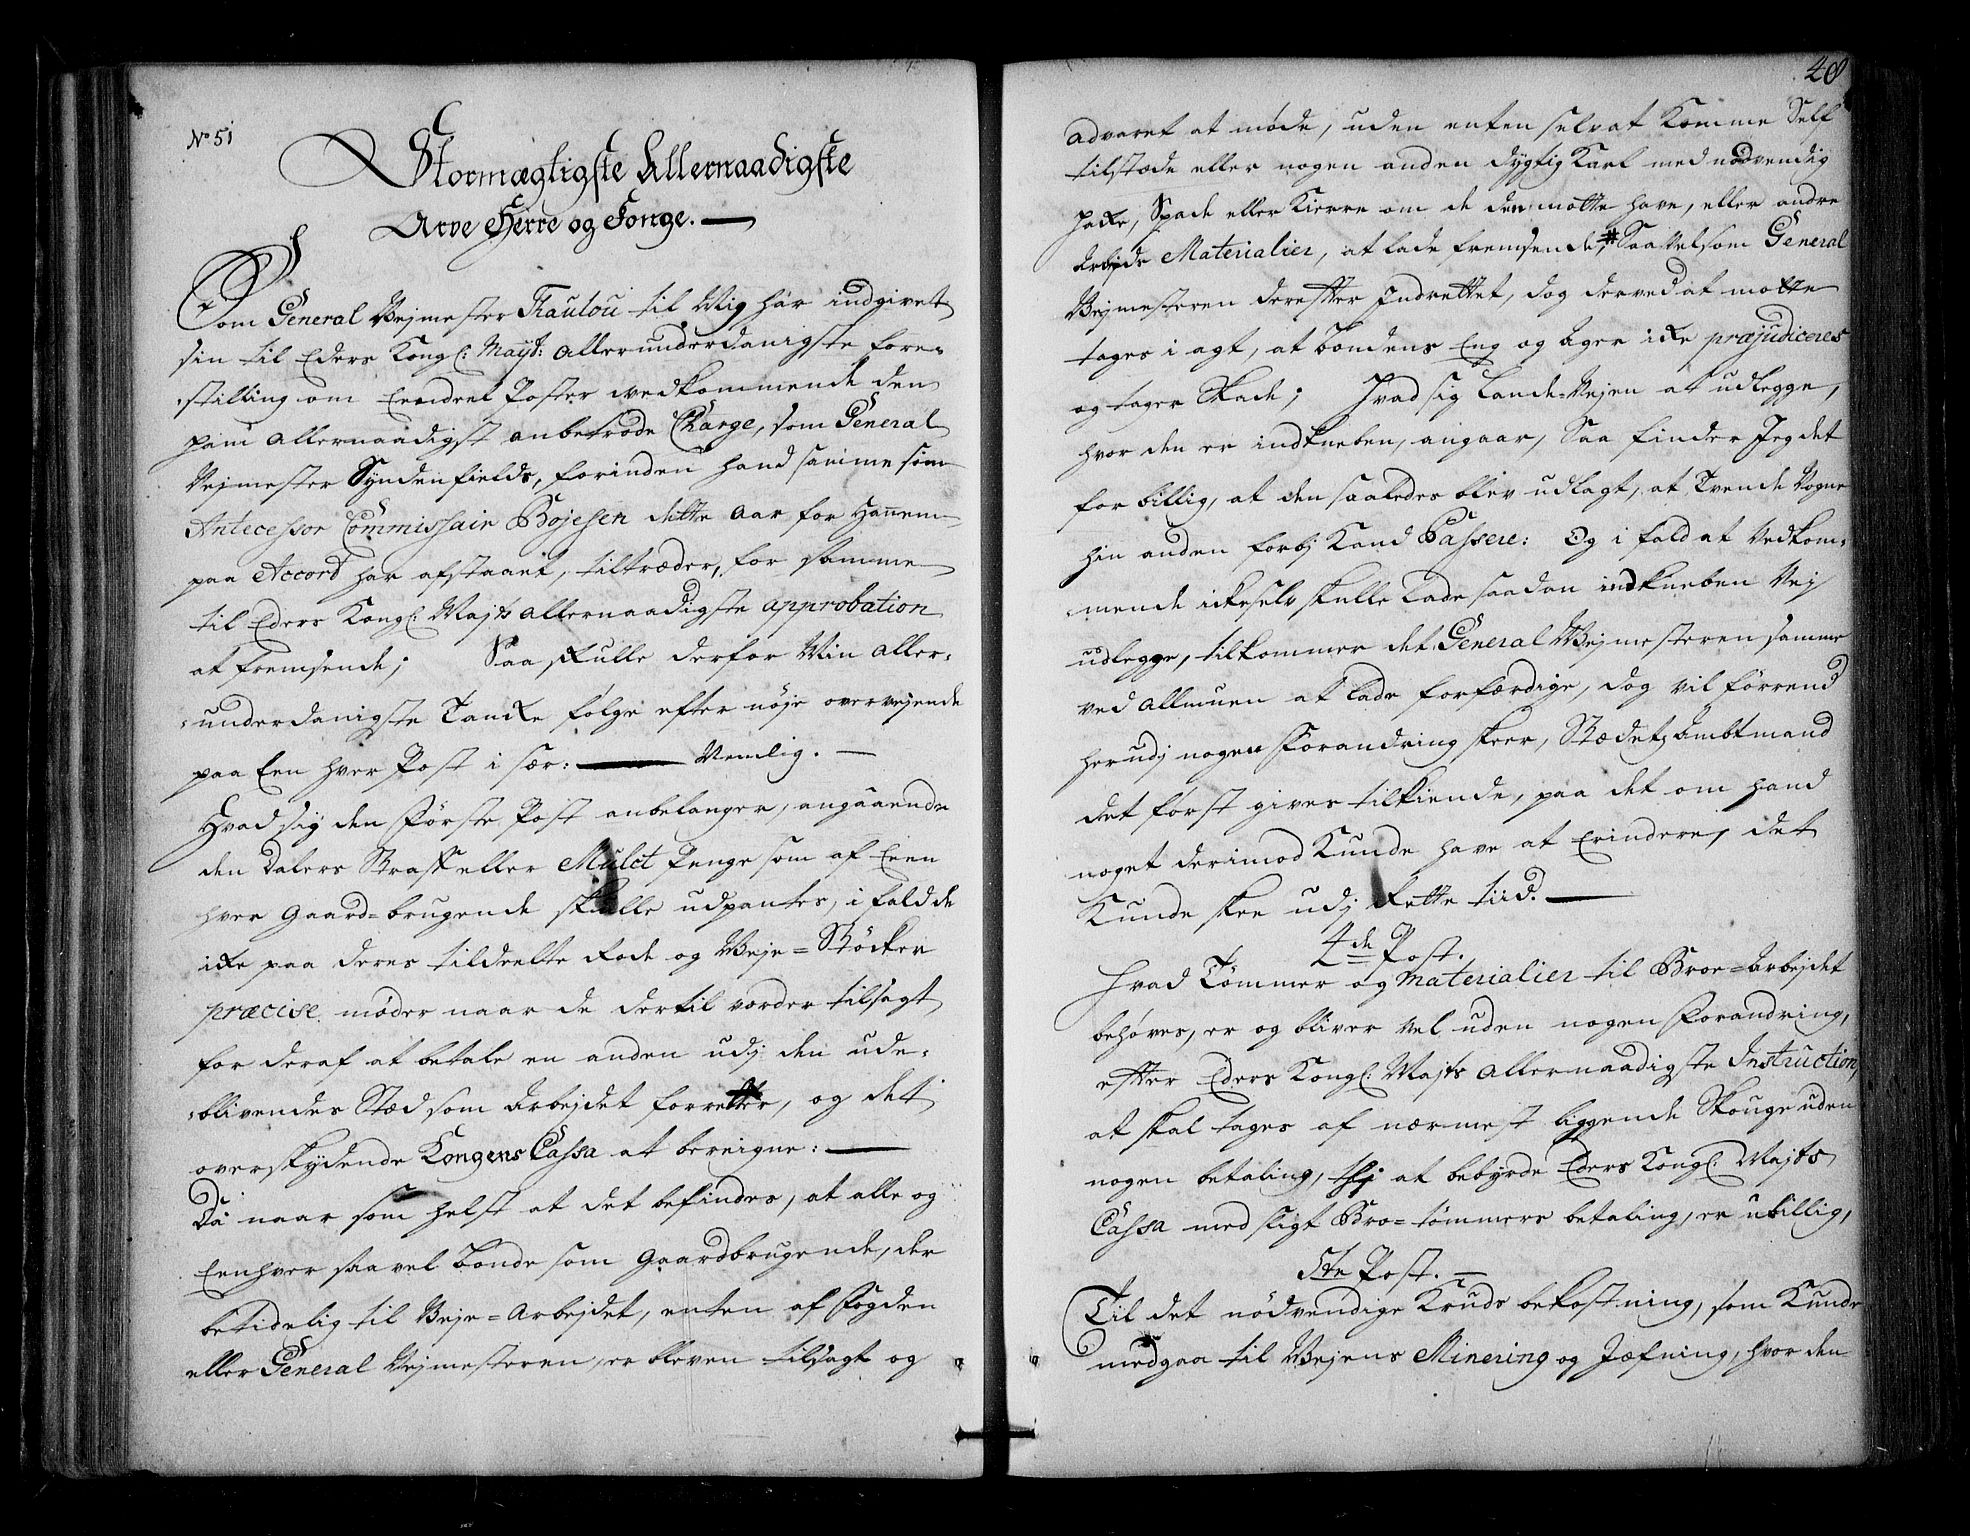 No 51
Stormægtigste Allernaadigste
Arve Herre og Konge. —
Som General Vejmester Frautou til Mig har indgivet
sin til Eders Kongl: Mayt: allerunderdanigste fore-
stilling om Eendeel Poster vedkommende den
ham allernaadigst anbetrode Charge, som General
Vejmester Syndenfields, forinden hand samme som
Antecessor Commissair Bojesen dette Aar for Hannem
paa Accord har afstaaet, tiltræder, for samme
til Eders Kongl: Majts allernaadigste approbation
at fremsende; Saa skulle derfor Min aller-
underdanigste Tancke følge efter nøje overvejende
paa Een hver Post i sær: — Nemlig. —
Hvad sig den Første Post anbelanger, angaaende
den Dalers Straff eller Mulct Penge som af Een
hver Gaard-brugende skulle udpantes, i fald de
icke paa deres tildeelte Rode og Veje-Stöcker
præcise møder naar de dertil vorder tilsagt,
for deraf at betale en anden udj den ude-
blivendes Stæd som Arbejdet forretter, og det
overskydende Kongens Cassa at bereigne: —
Da naar som helst at det befindes, at alle og
Eenhver saavel Bonde som Gaardbrugende, der
betidelig til Veje-Arbejdet, enten af Fogden
eller General Vejmesteren er bleven tilsagt og
48
advaret at møde, uden enten selv at Komme Self
tilstæde eller nogen anden dygtig Karl med nødvendig
Hacke, Spade eller Kierre om de dem motte have, eller andre
Arbejds Materialier, at lade fremsende, # Saa velsom General
Vejmesteren derefter Indrettet, dog derved at motte
tages i agt, at bondens Eng og Ager icke præjudiceres
og tager Skade; Hvad sig Lande-Vejen at udlegge,
hvor den er indkneben, angaar, Saa finder Jeg det
for billig, at den saaledes blev udlagt, at Tvende Vogne
hin anden forbj Kand Passere: Og i fald at Vedkom-
mende icke selv skulle lade saadan indkneben Vej
udlegge, tilkommer det General Vejmesteren samme
ved Allmuen at lade forfærdige, dog vil förrend
herudj nogen Forandring skeer, Stædets Ambtmand
det først gives tilkiende, paa det om hand
noget derimod Kunde have at Erindere, det
Kunde skee udj Rette tiid. —
4de Post.
Hvad Tömmer og Materialier til Broe-Arbejdet
behøves, er og bliver vel uden nogen Forandring,
efter Eders Kongl: Majts Allernaadigste Instruction,
at skal tages af nærmest liggende Skouge uden
nogen betaling, thj at bebyrde Eders Kongl: Majts
Cassa med sligt Bro-tömmers betaling, er ubillig,
5te Post. —
Til det nödvendige Kruds bekostning, som Kunde
medgaa til Vejens Minering og Jæfning, hvor den